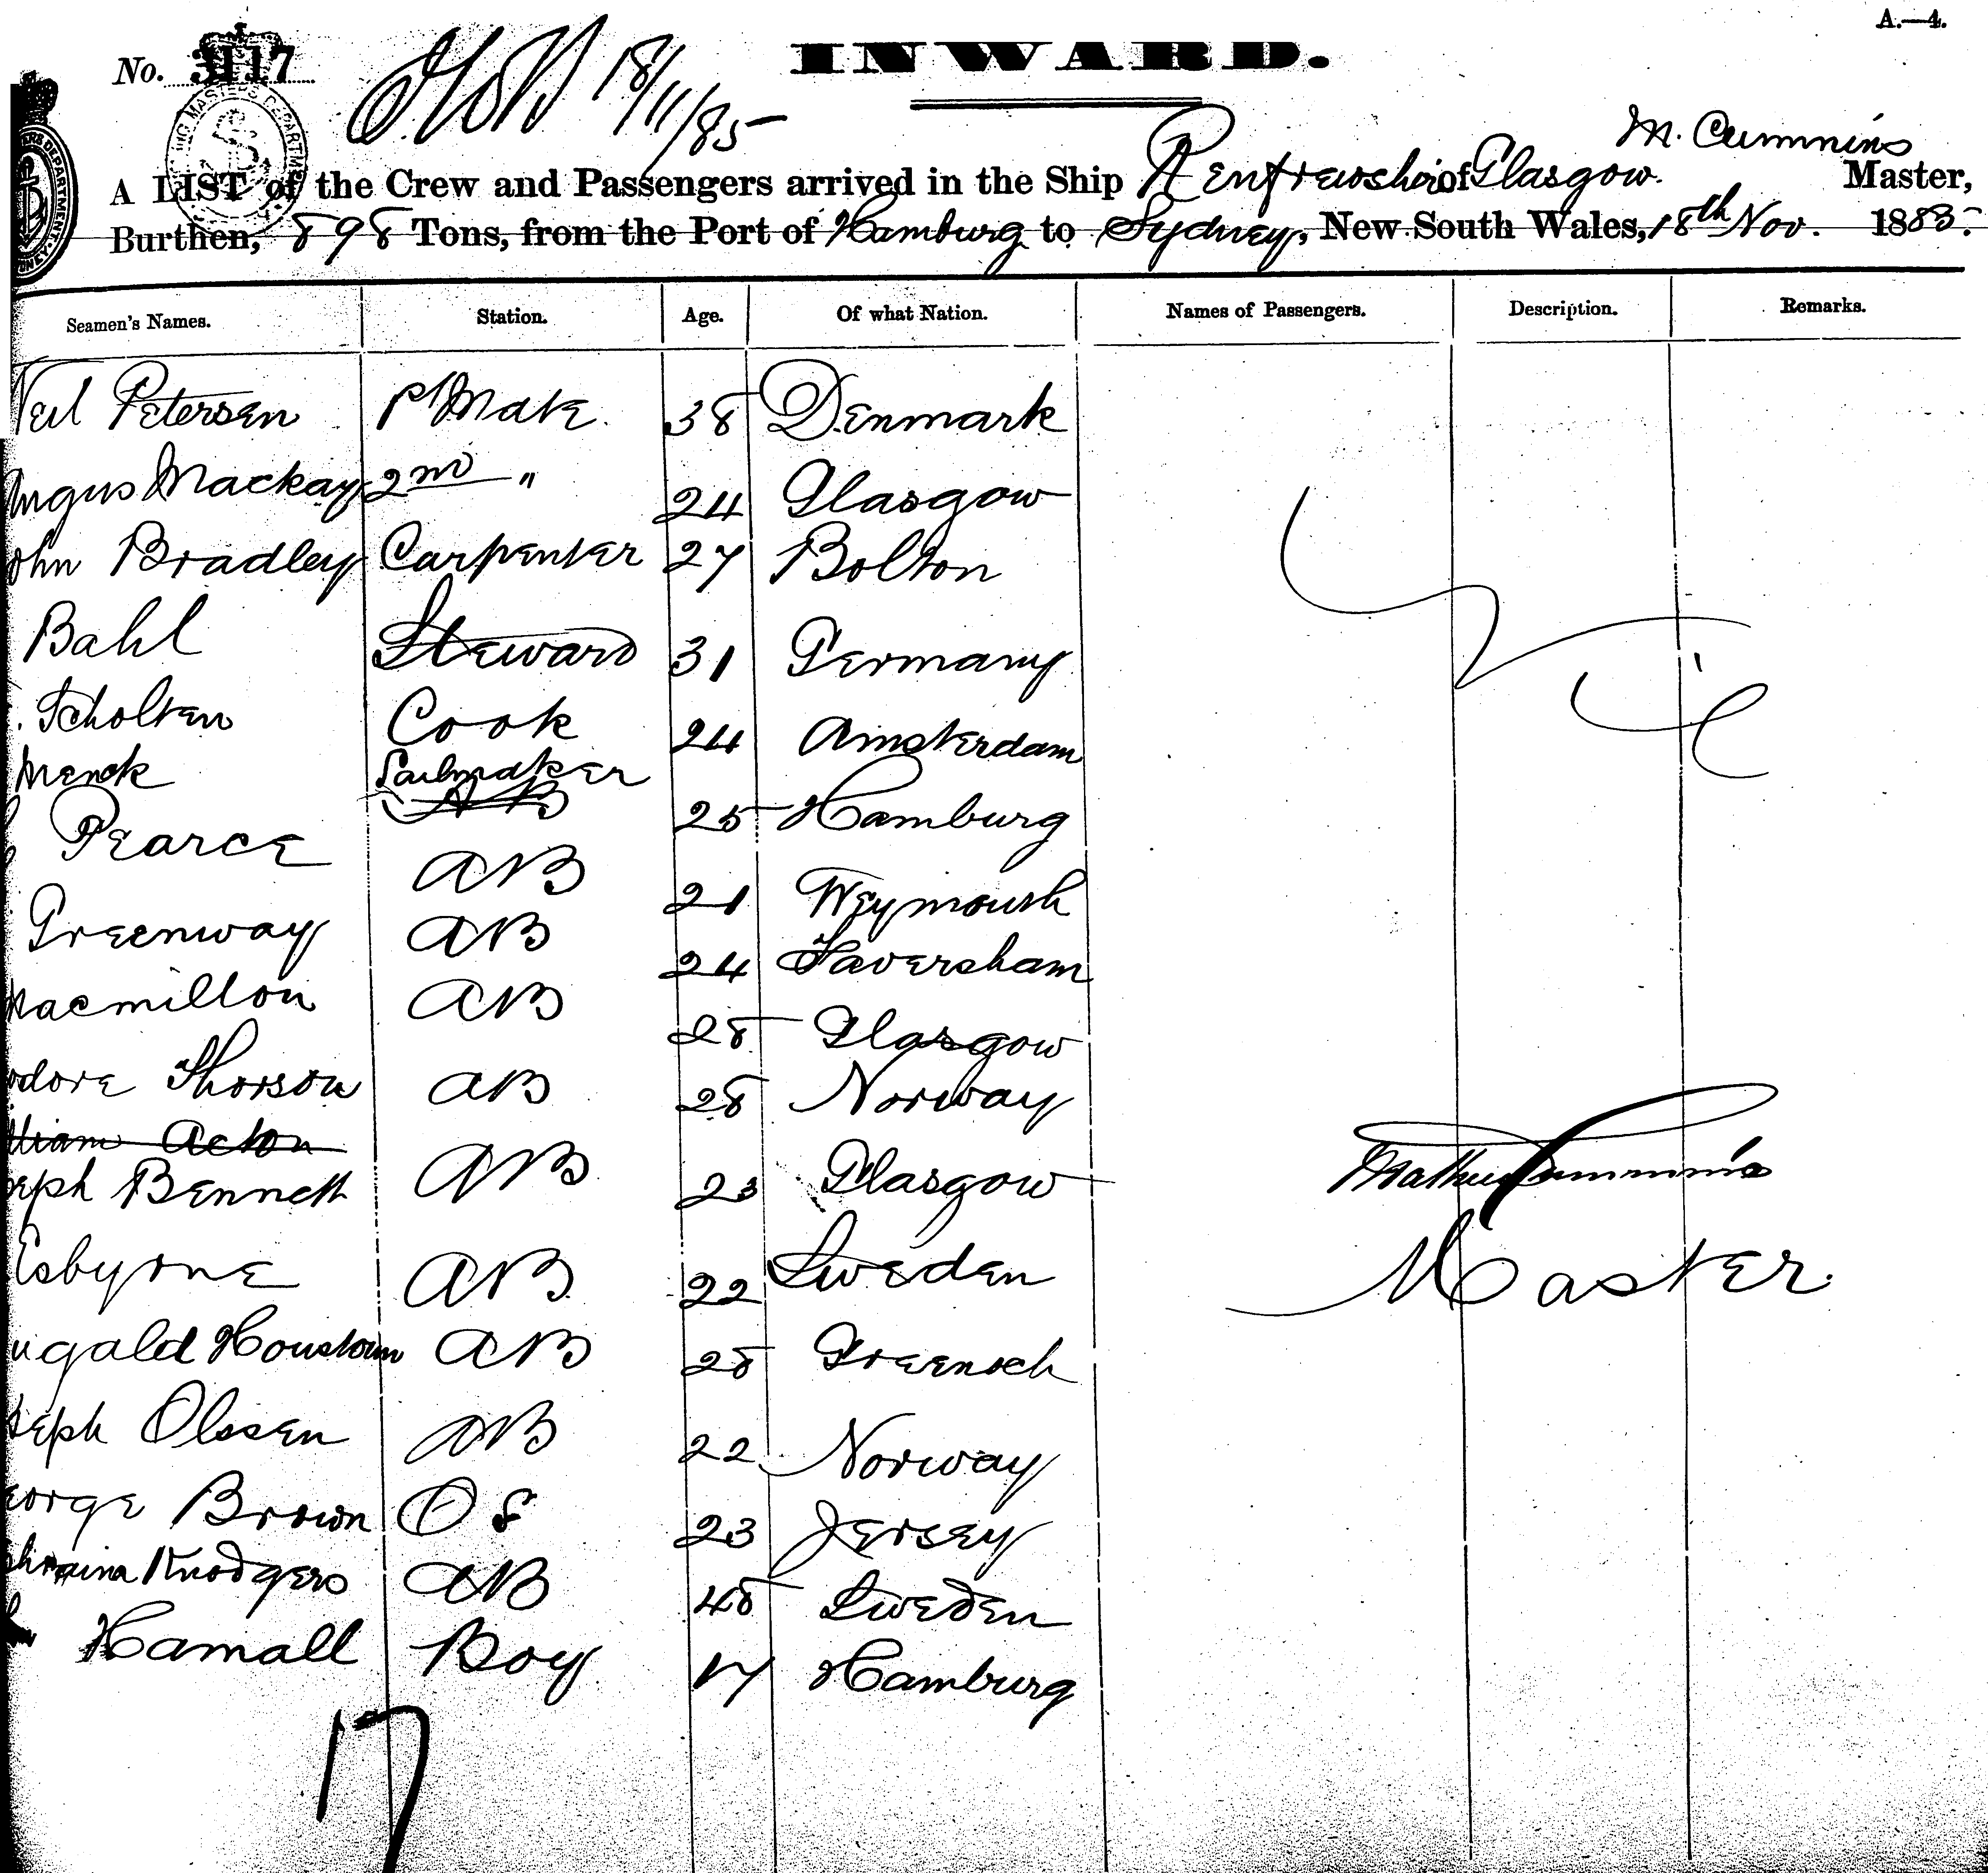 A.—4.
No. 3117
18/11/85
INWARD.
M. Cummins
A LIST of the Crew and Passengers arrived in the Ship Renfrewshire of Glasgow. Master,
Burthen, 898 Tons, from the Port of Hamburg to Sydney, New South Wales, 18th Nov. 1885.
Seamen's Names. Station. Age. Of what Nation. Names of Passengers. Description. Remarks.
Neil Petersen 1st Mate. 38 Denmark
Angus Mackay 2nd " 24 Glasgow
John Bradley Carpenter 27 Bolton
Bahl Steward 31 Germany
Scholten Cook 24 Amsterdam
Menck Sailmaker AB 25 Hamburg
Pearce AB 21 Weymouth
Greenway AB 24 Faversham
Macmillon AB 28 Glasgow
odore Thorson AB 28 Norway
lliam Acton
seph Bennett AB 23 Glasgow
Mathew Cummins
Esbyrne AB 22 Sweden
Master.
ugald Houstoun AB 28 Greenock
seph Olssen AB 22 Norway
eorge Brown OS 23 Jersey
Knodgers AB 48 Sweden
Hamall Boy 17 Hamburg
17